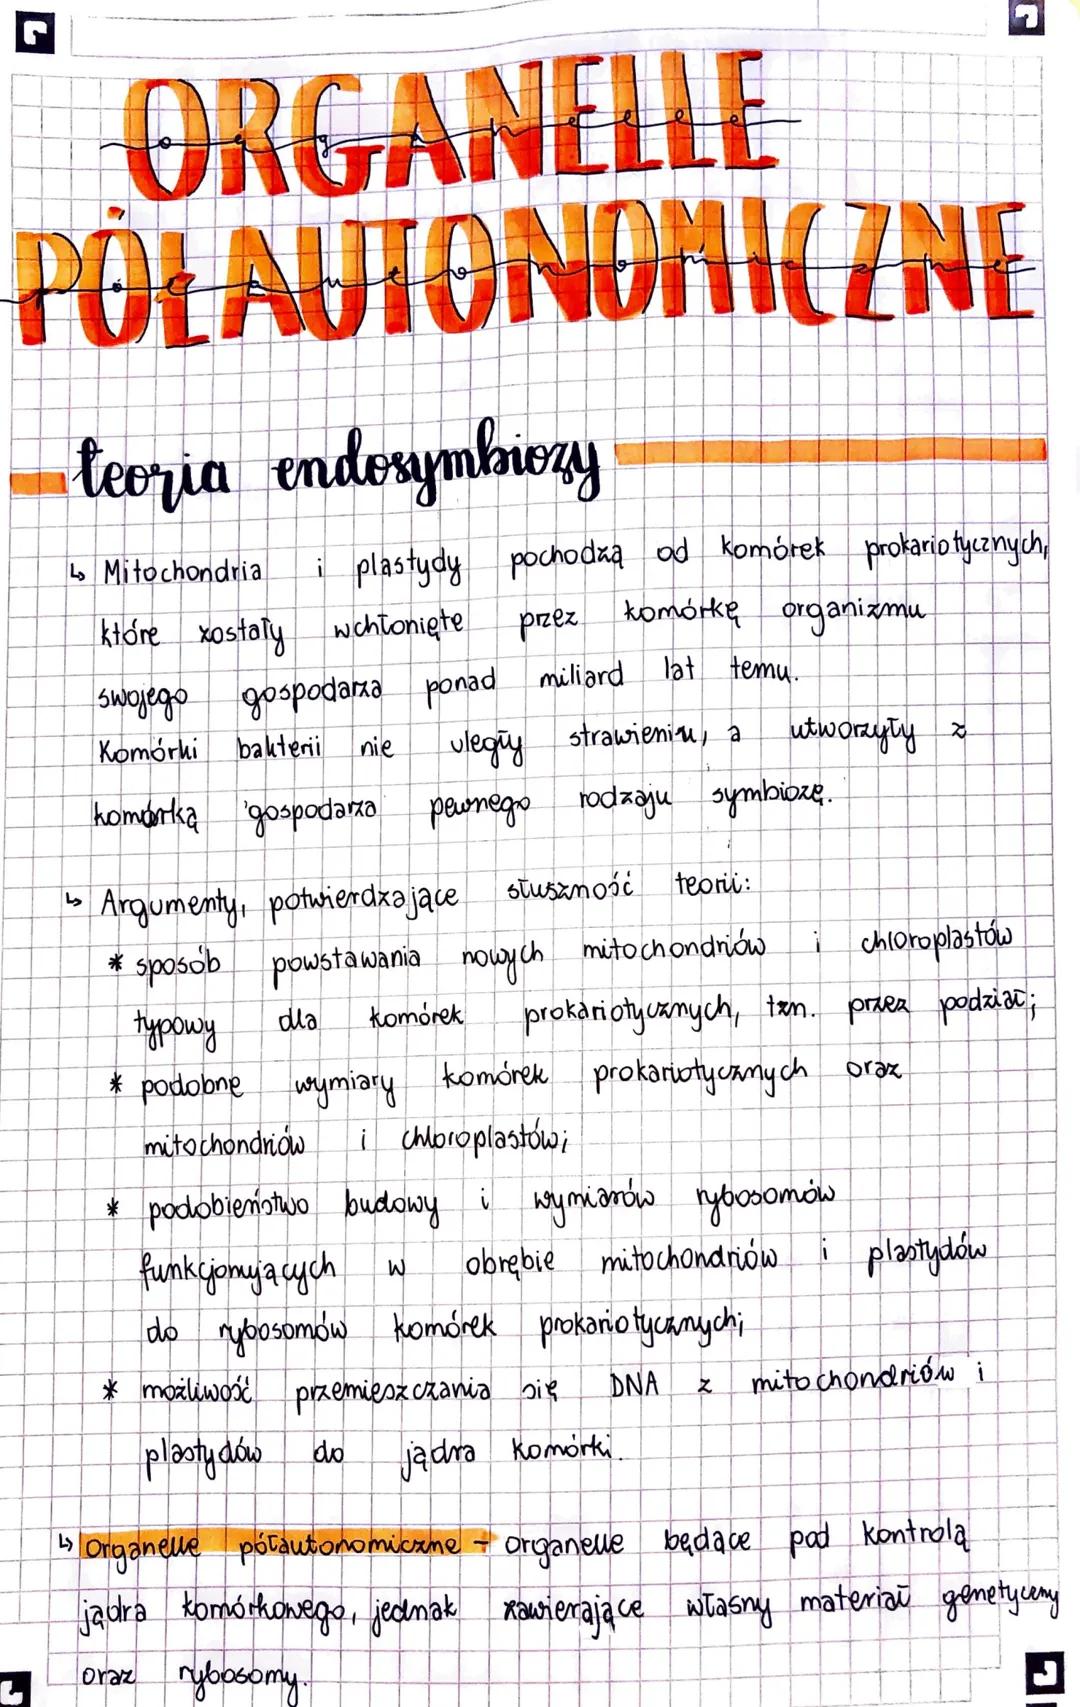 ORGANELLE
organelle
PÓŁAUTONOMICZNE
półautonomiczne
teoria endosymbiozy
↳ Mitochondria i plastydy pochodzą od komórek prokariotycznych,
które zostały wchłonięte przez komórkę organizmu
swojego gospodarza ponad miliard lat temu.
Komórki bakterii nie uległy strawieniu, a utworzyły z
komórką gospodarza pewnego rodzaju symbiozę.
↳ Argumenty, potwierdzające słuszność teorii:
* sposób powstawania nowych mitochondriów i chloroplastów
typowy dla komórek prokariotycznych, tzn. przez podział;
* podobne wymiary komórek prokariotycznych oraz
mitochondriów i chloroplastów;
* podobieństwo budowy i wymiarów rybosomów
funkcjonujących w obrębie mitochondriów i plastydów
do rybosomów komórek prokariotycznych;
* możliwość przemieszczania się DNA z mitochondriów i
plastydów do jądra komórki.
↳ Organelle półautonomiczne - organelle będące pod kontrolą
jądra komórkowego, jednak zawierające własny materiał genetyczny
oraz rybosomy.